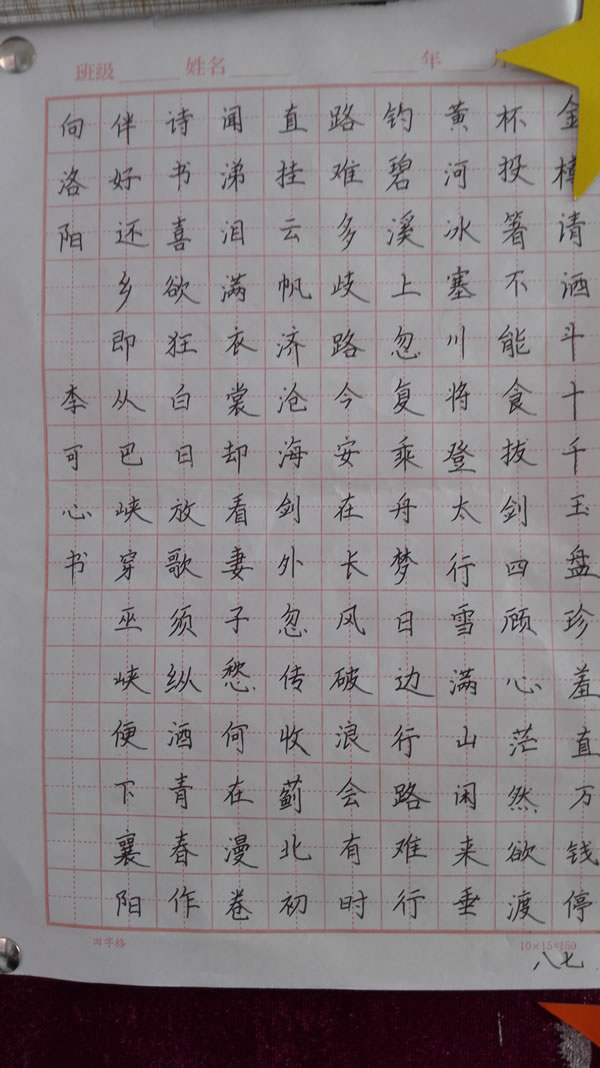 班级 姓名 年 月
金樽请洒斗十千玉盘珍羞直万钱停
杯投箸不能食拔剑四顾心茫然欲渡
黄河冰塞川将登太行雪满山闲来垂
钓碧溪上忽复乘舟梦日边行路难行
路难多歧路今安在长风破浪会有时
直挂云帆济沧海剑外忽传收蓟北初
闻涕泪满衣裳却看妻子愁何在漫卷
诗书喜欲狂白日放歌须纵酒青春作
伴好还乡即从巴峡穿巫峡便下襄阳
向洛阳 李可心书
田字格 10×15=150
八七